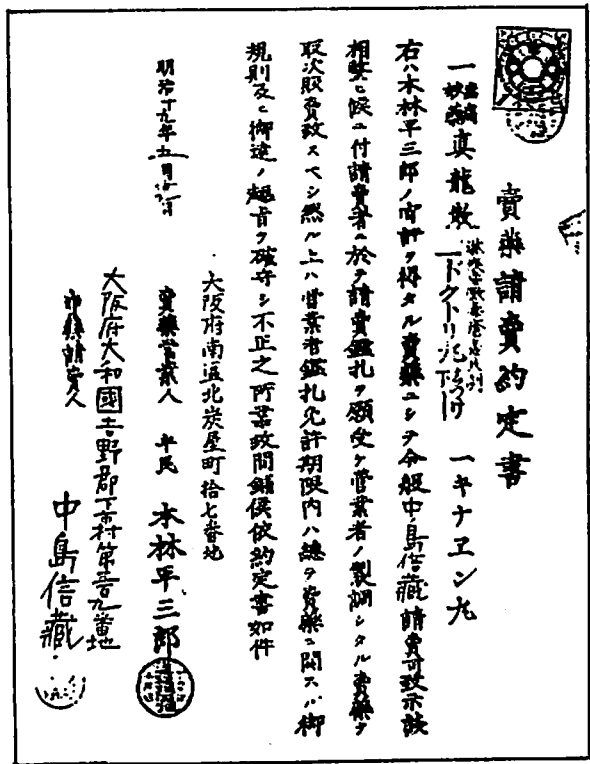 賣藥請賣約定書
一 真龍散 一ドクトリ 一キナヱン丸
右ハ木林平三郎ノ官許ヲ得タル賣藥ニシテ今般中島信藏請賣可致示談
相整ヒ候ニ付請賣者ニ於テ請賣鑑札ヲ願受ケ營業者ノ製調シタル賣藥ヲ
取次販賣致スベシ然ル上ハ營業者鑑札免許期限内ハ總テ賣藥ニ関スル御
規則及ヒ御達ノ趣旨ヲ確守シ不正之所業致間鋪候依約定書如件
明治十九年五月
大阪府南區北炭屋町拾七番地
賣藥營業人 平民 木林平三郎
大阪府大和國吉野郡下市村第 九番地
請賣人 中島信藏